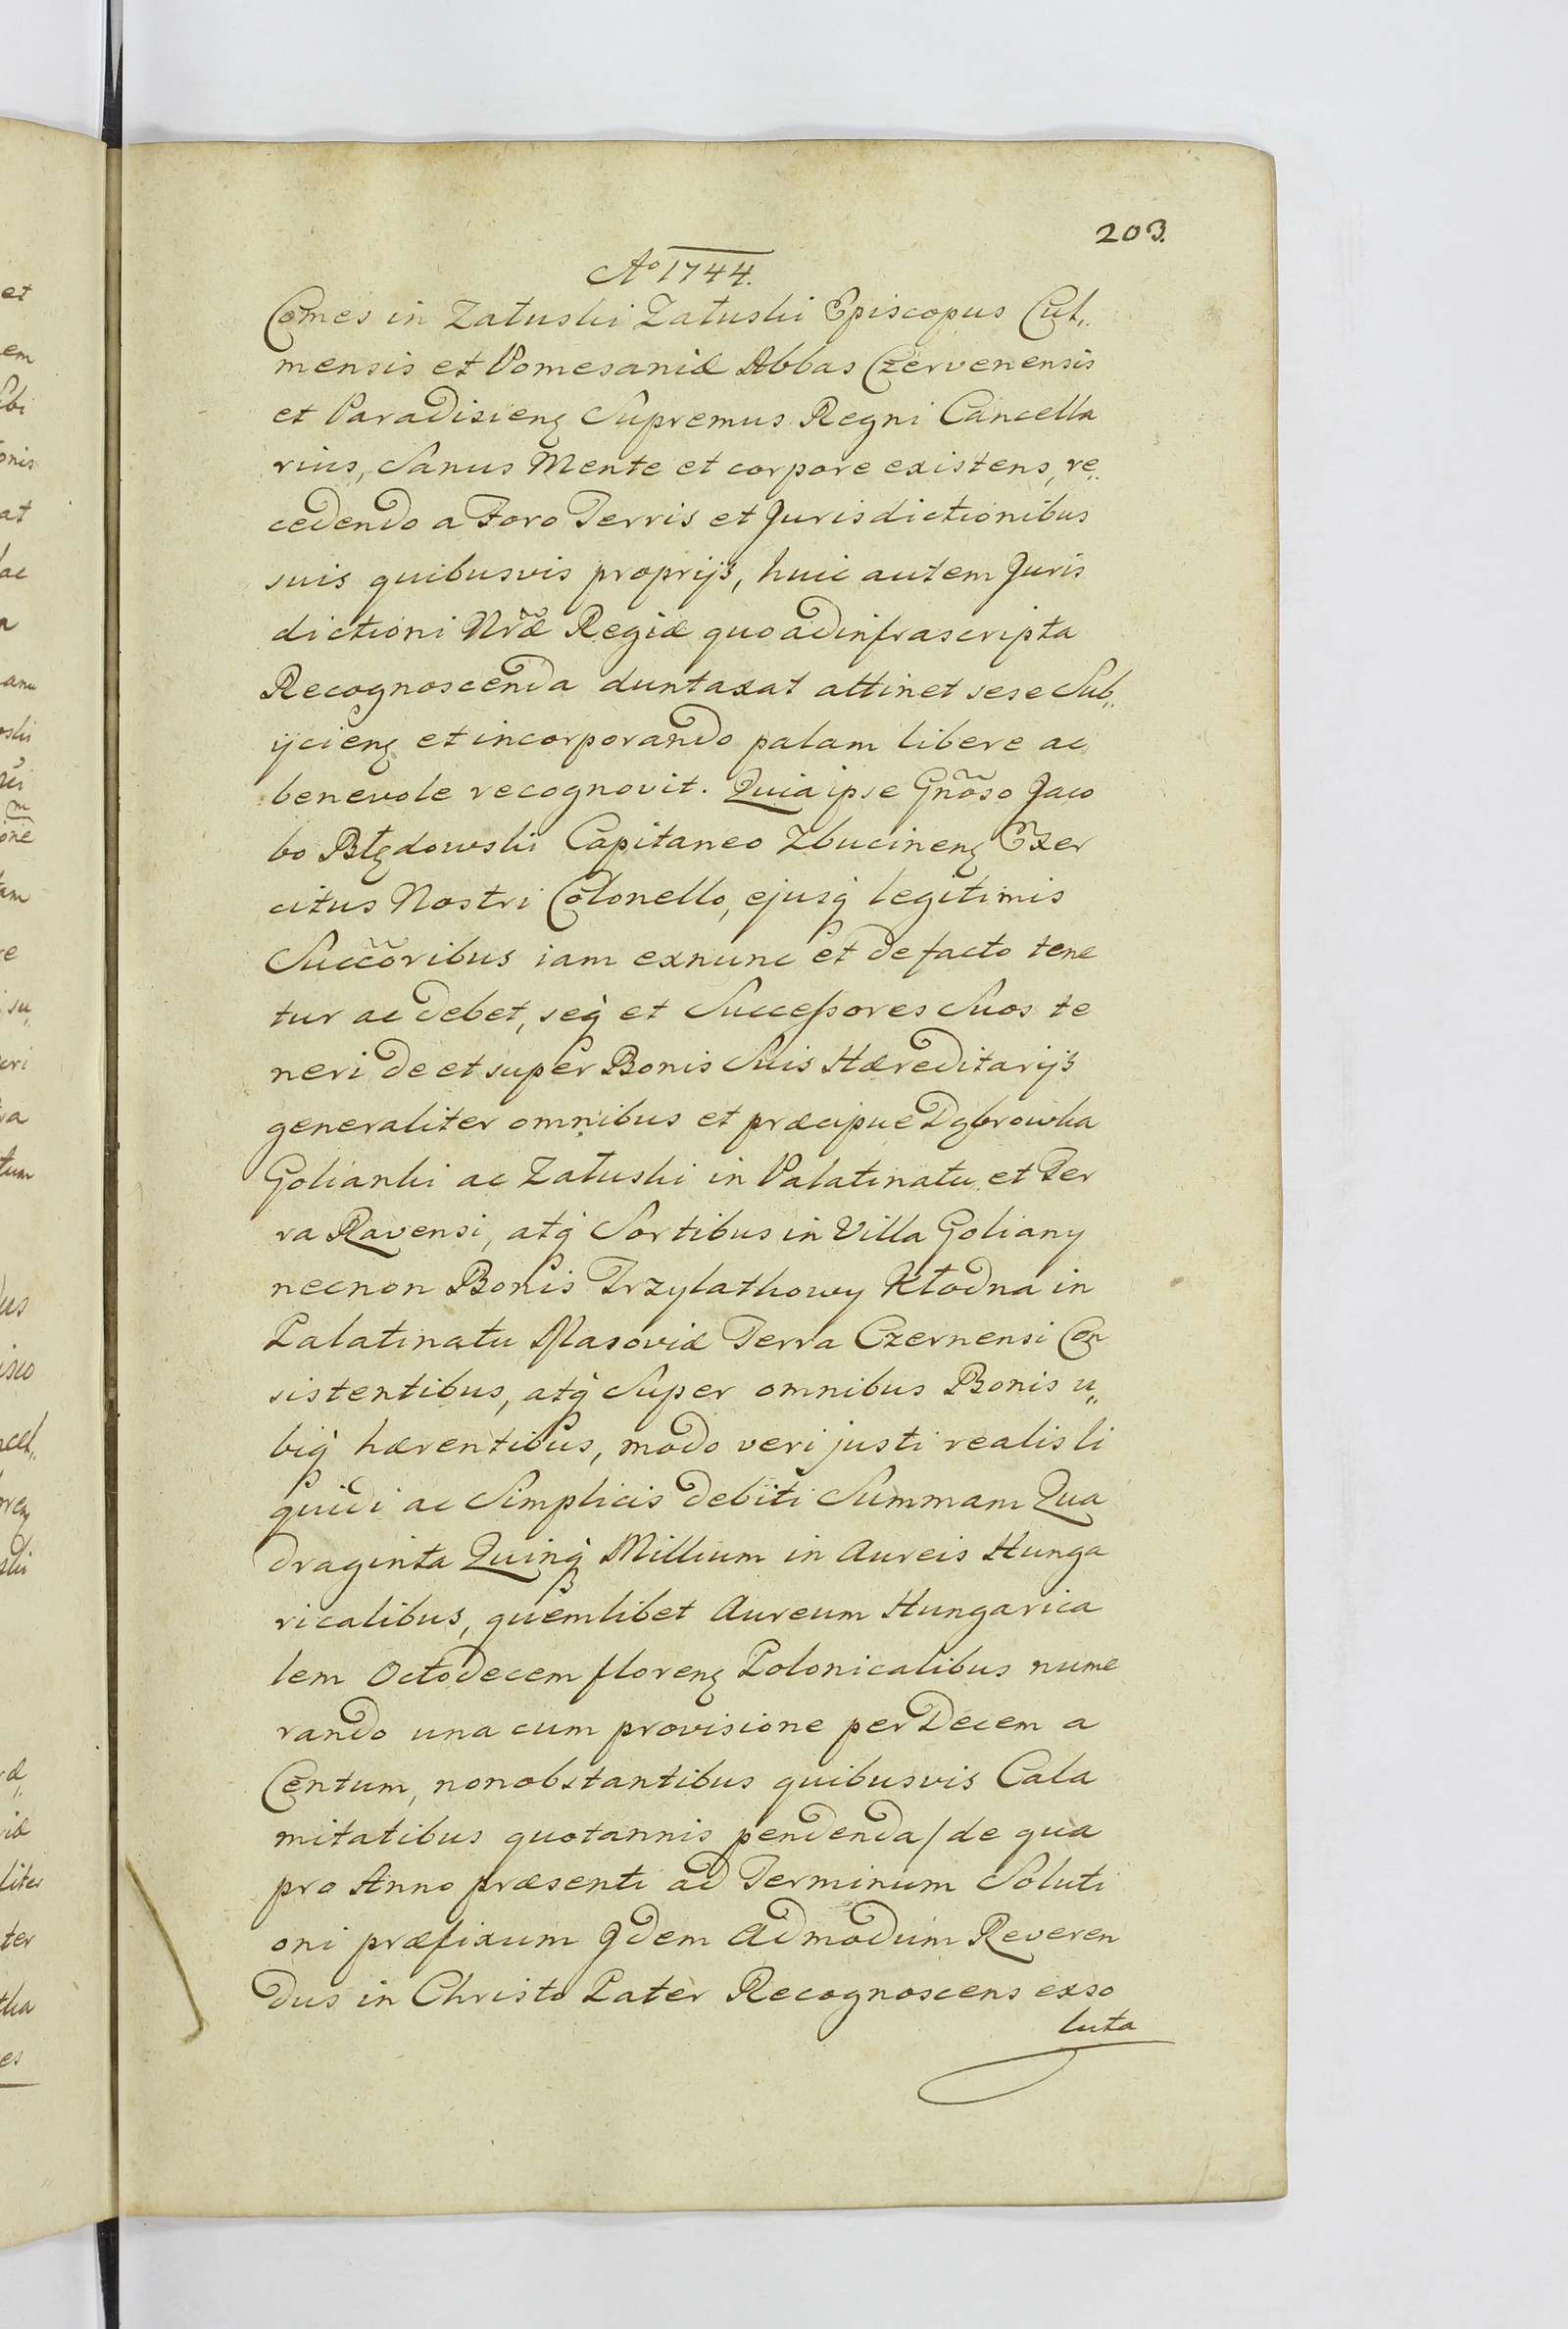 203.
Aº 1744.
Comes in Załuski Załuski Episcopus Cul„
mensis et Pomesaniæ Abbas Czervenensis
et Paradisienę Supremus Regni Cancella
rius, Sanus Mente et corpore existens, re„
cedendo a Foro Terris et Jurisdictionibus
suis quibusvis proprijs, huic autem Juris
dictioni Nr̃æ Regiæ quo ad infrascripta
Recognoscenda duntaxat attinet sese Sub„
ijcienę et incorporando palam libere ac
benevole recognovit. Quia ipse Gnõso Jaco
bo Błędowski Capitaneo Zbucinenę Exer
citus Nostri Colonello, ejusq́ legitimis
Succõribus iam exnunc et de facto tene
tur ac debet, seq́ et Successores Suos te
neri de et super Bonis Suis Hæreditarijs
generaliter omnibus et præcipue Dąbrowka
Golianki ac Załuski in Palatinatu et Ter
ra Ravensi, atq́ Sortibus in Villa Goliany
necnon Bonis Trzylatkowy Kłodna in
Palatinatu Masoviæ Terra Czernensi Con
sistentibus, atq́ Super omnibus Bonis u„
biq́ hærentibus, modo veri justi realis li
quidi ac Simplicis debiti Summam Qua
draginta Quinq́ Millium in Aureis Hunga
ricalibus, quemlibet Aureum Hungarica
lem Octodecem florenę Polonicalibus nume
rando una cum provisione per Decem a
Centum, nonobstantibus quibusvis Cala
mitatibus quotannis pendenda / de qua
pro Anno præsenti ad Terminum Soluti
oni præfixum Idem Admodum Reveren
dus in Christo Pater Recognoscens exso
luta